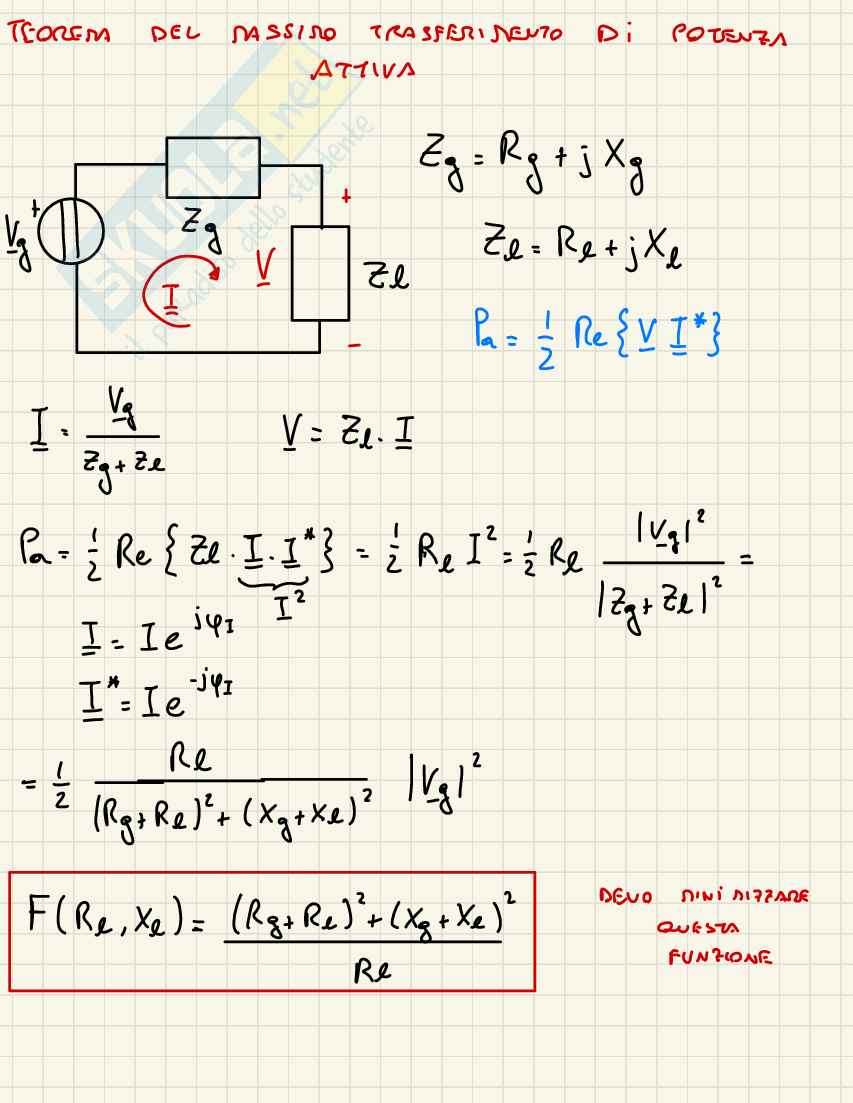 TEOREMA DEL MASSIMO TRASFERIMENTO Di POTENZA
ATTIVA
SKUOLA.net
il paradiso dello studente
Zg = Rg + j Xg
Zl = Rl + j Xl
Pa = 1/2 Re { V I* }
Vg
+
Zg
I
V
+
-
Zl
I = Vg / (Zg + Zl)
V = Zl . I
Pa = 1/2 Re { Zl . I . I* } = 1/2 Rl I² = 1/2 Rl |Vg|² / |Zg + Zl|² =
I²
I = I e^(jφI)
I* = I e^(-jφI)
= 1/2 Rl / ((Rg + Rl)² + (Xg + Xl)²) |Vg|²
F(Rl, Xl) = ((Rg + Rl)² + (Xg + Xl)²) / Rl
DEVO MINIMIZZARE
QUESTA
FUNZIONE